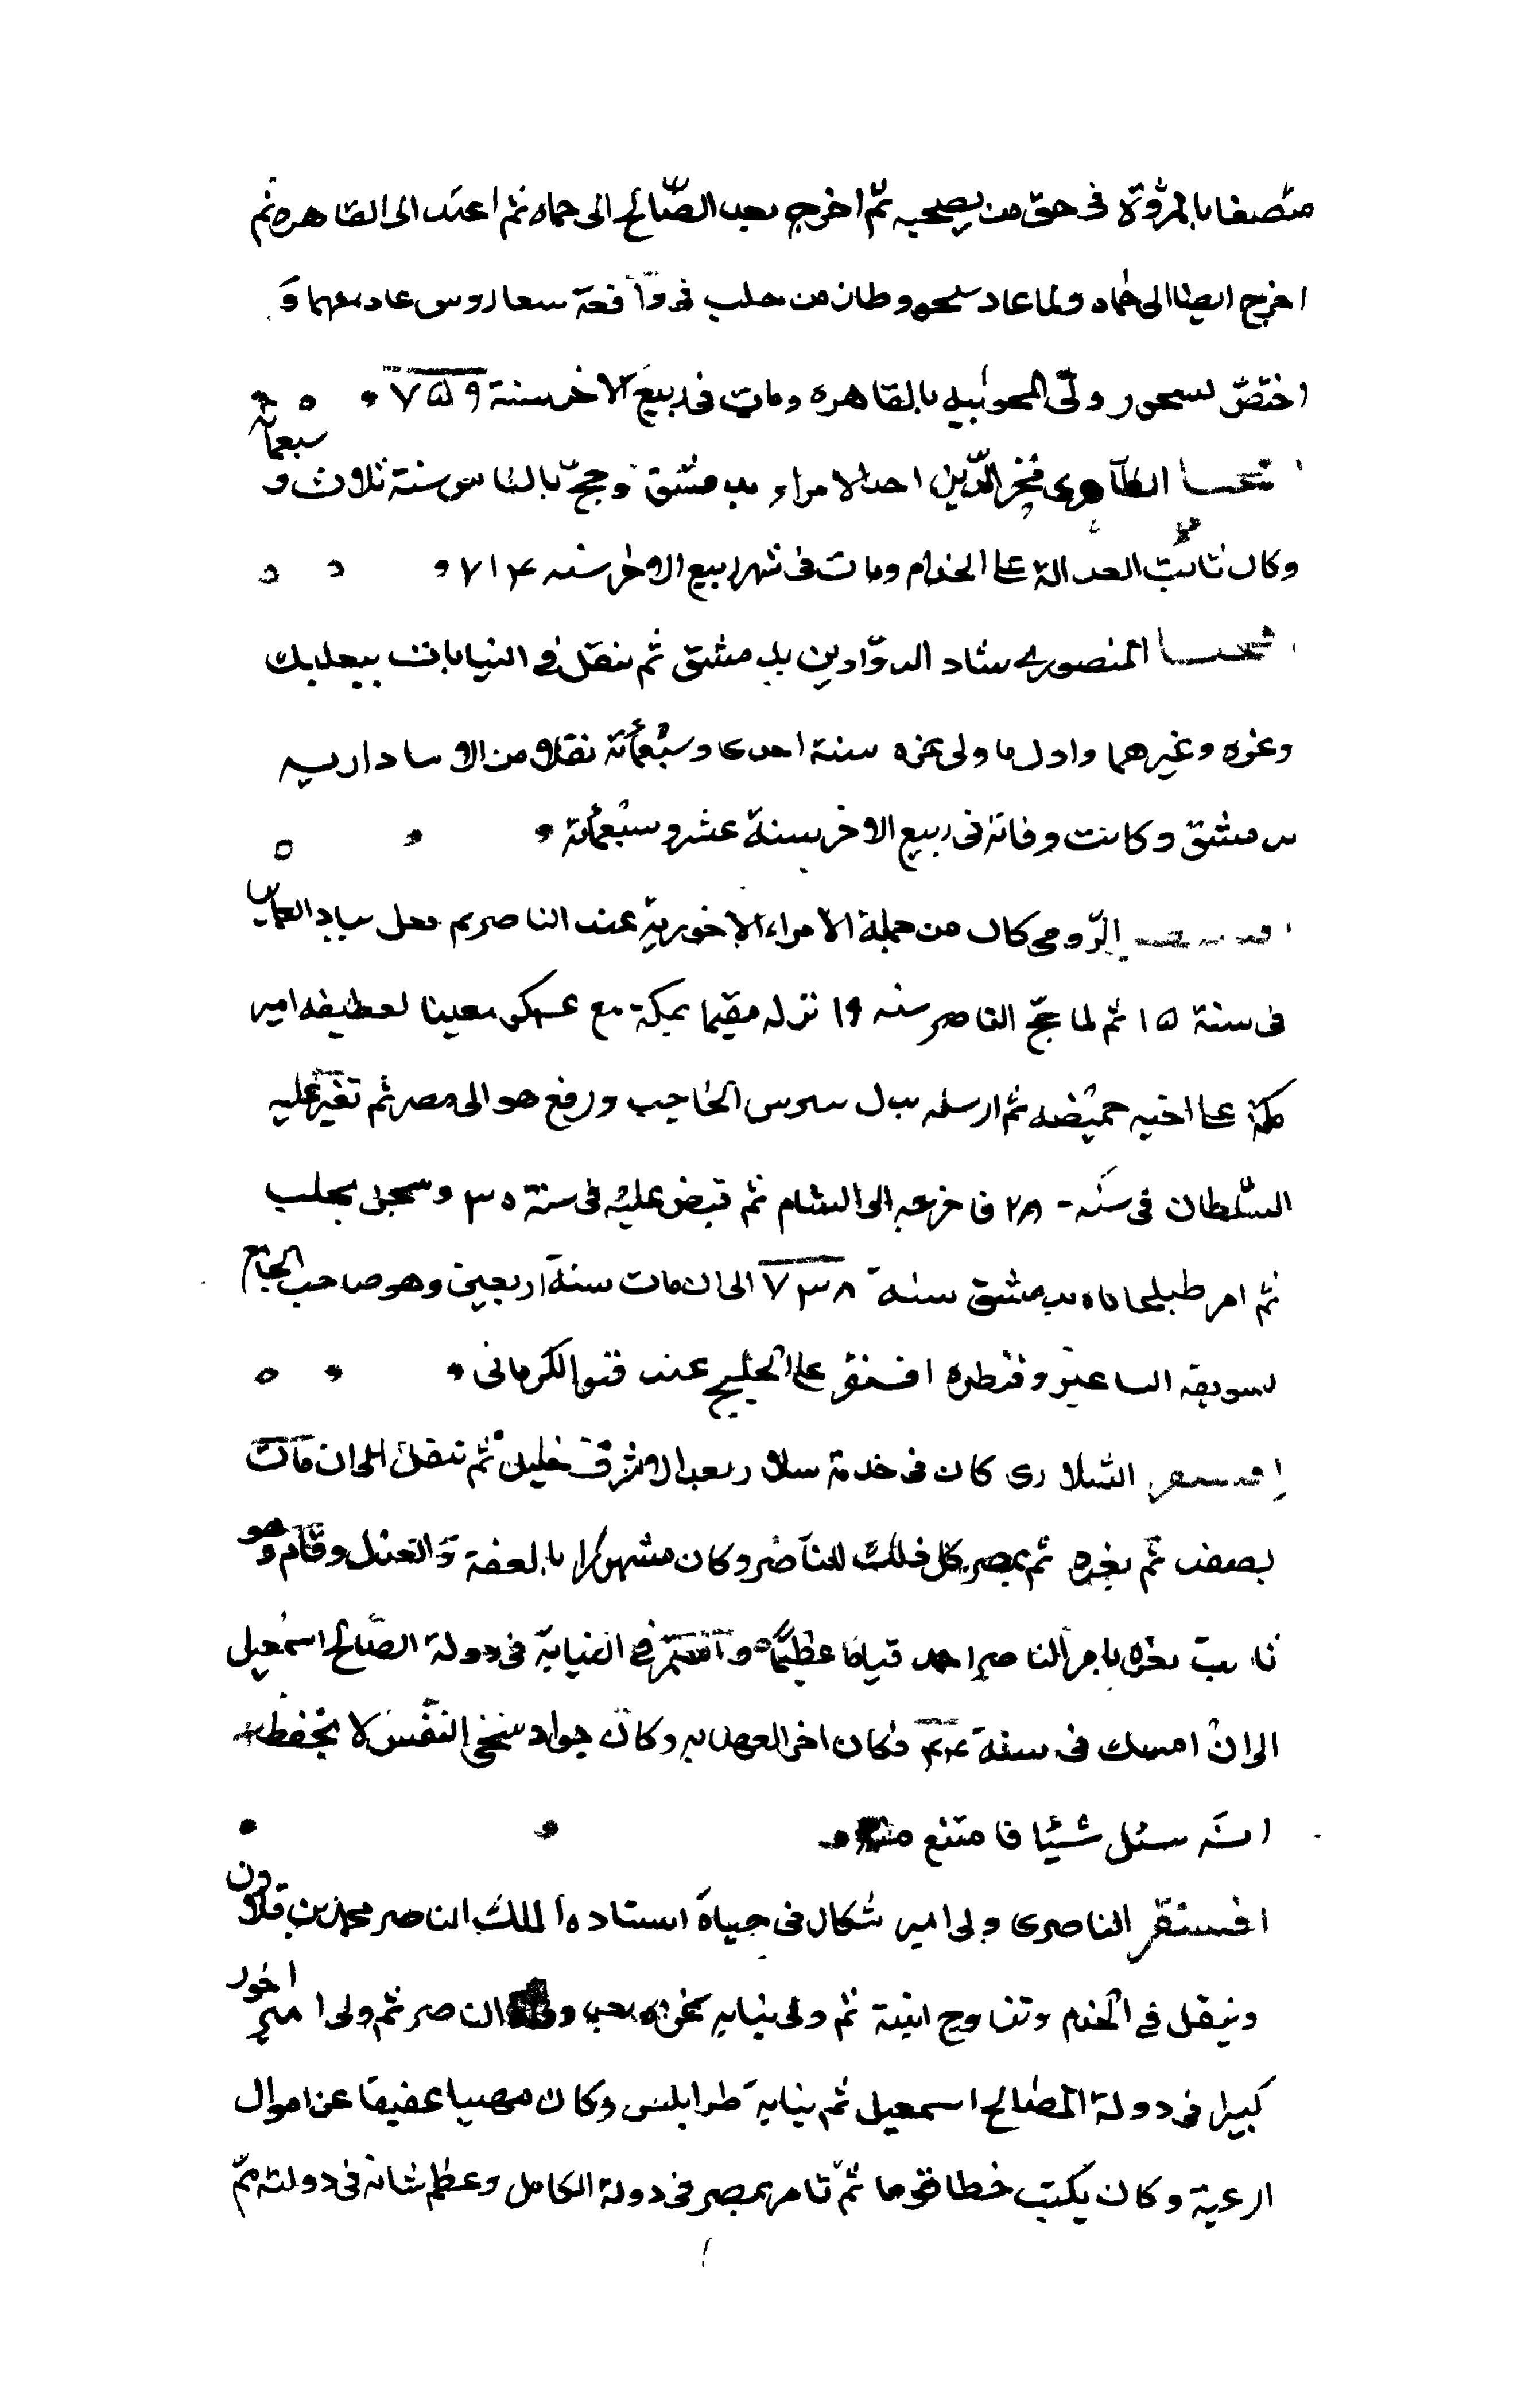 متصفا بالمروّة فى حق من يصحبه ثمّ اخرج بعد الصّالح الى حماه ثم اعيد الى القاهره ثم
اخرج ايضا الى حماه ولما عاد وطاز من حلب فى واقعة عاد معهما وَ
اختصّ ولّى بالقاهره ومات فى ربيع الاخر سنة ٧٥٩
فخر الدّين احد الامراء بدمشق وحجّ بالناس سنة ثلاث و سبعمائة
وكان ثابت العدالة على الخدام ومات فى شهر ربيع الاخر سنه ٧١٤
المنصورى شاد الدوّاوين بدمشق ثم تنقل فى النيابات ببعلبك
وغزه وغيرهما واول ما ولى غزه سنة احدى وسبعمائة نقلا من الاسادارىىه
بدمشق وكانت وفاته فى ربيع الاخر سنة عشر وسبعمائة
الرّومى كان من جملة الامراء الاخورية عند الناصر
فى سنة ١٥ ثم لما حجّ الناصر سنه ١٩ نزله مقيما بمكة مع عسكر معينا لعطيفه امير
مكة على اخيه حميضه ثم ارسله بدل الحاجب ورفع هو الى مصر ثم تغيّر عليه
السّلطان فى سنة ٢٨ فاخرجه الى الشام ثم قبض عليه فى سنة ٣٥ وسجن بحلب
ثم امر بدمشق سنة ٧٣٨ الى ان مات سنة اربعين وهو صاحب الجامع
بسويقه وقنطره اقسنقر على الخليج عند الكرمانى
السّلارى كان فى خدمة سلار بعد الاشرف خليل ثم تنقل الى ان مات
بصفد ثم بغزه ثم بمصر كل ذلك للناصر وكان مشهورا بالعفة وَالعدل وقام وهو
نائب بغزه بامر الناصر احمد قياما عظيما واستمر فى النيابة فى دولة الصّالح اسمعيل
الى ان امسك فى سنة ٤٤ فكان اخر العهد به وكان جواد سخى النّفس لا يحفظ
انّه سئل شيئا فامتنع منه
اقسنقر الناصرى ولى امير شكار فى حياة استاده الملك الناصر محمد بن قلاون
وتنقل فى الخدم وتزاوج ابنته ثم ولى نيابه غزه بعد الناصر ثم ولى امير اخور
كبيرا فى دولة الصالح اسمعيل ثم نيابة طرابلس وكان مهيبا عفيفا عن اموال
الرعية وكان يكتب خطا قويا ثمّ تامر بمصر فى دولة الكامل وعظم شانه فى دولته ثمّ